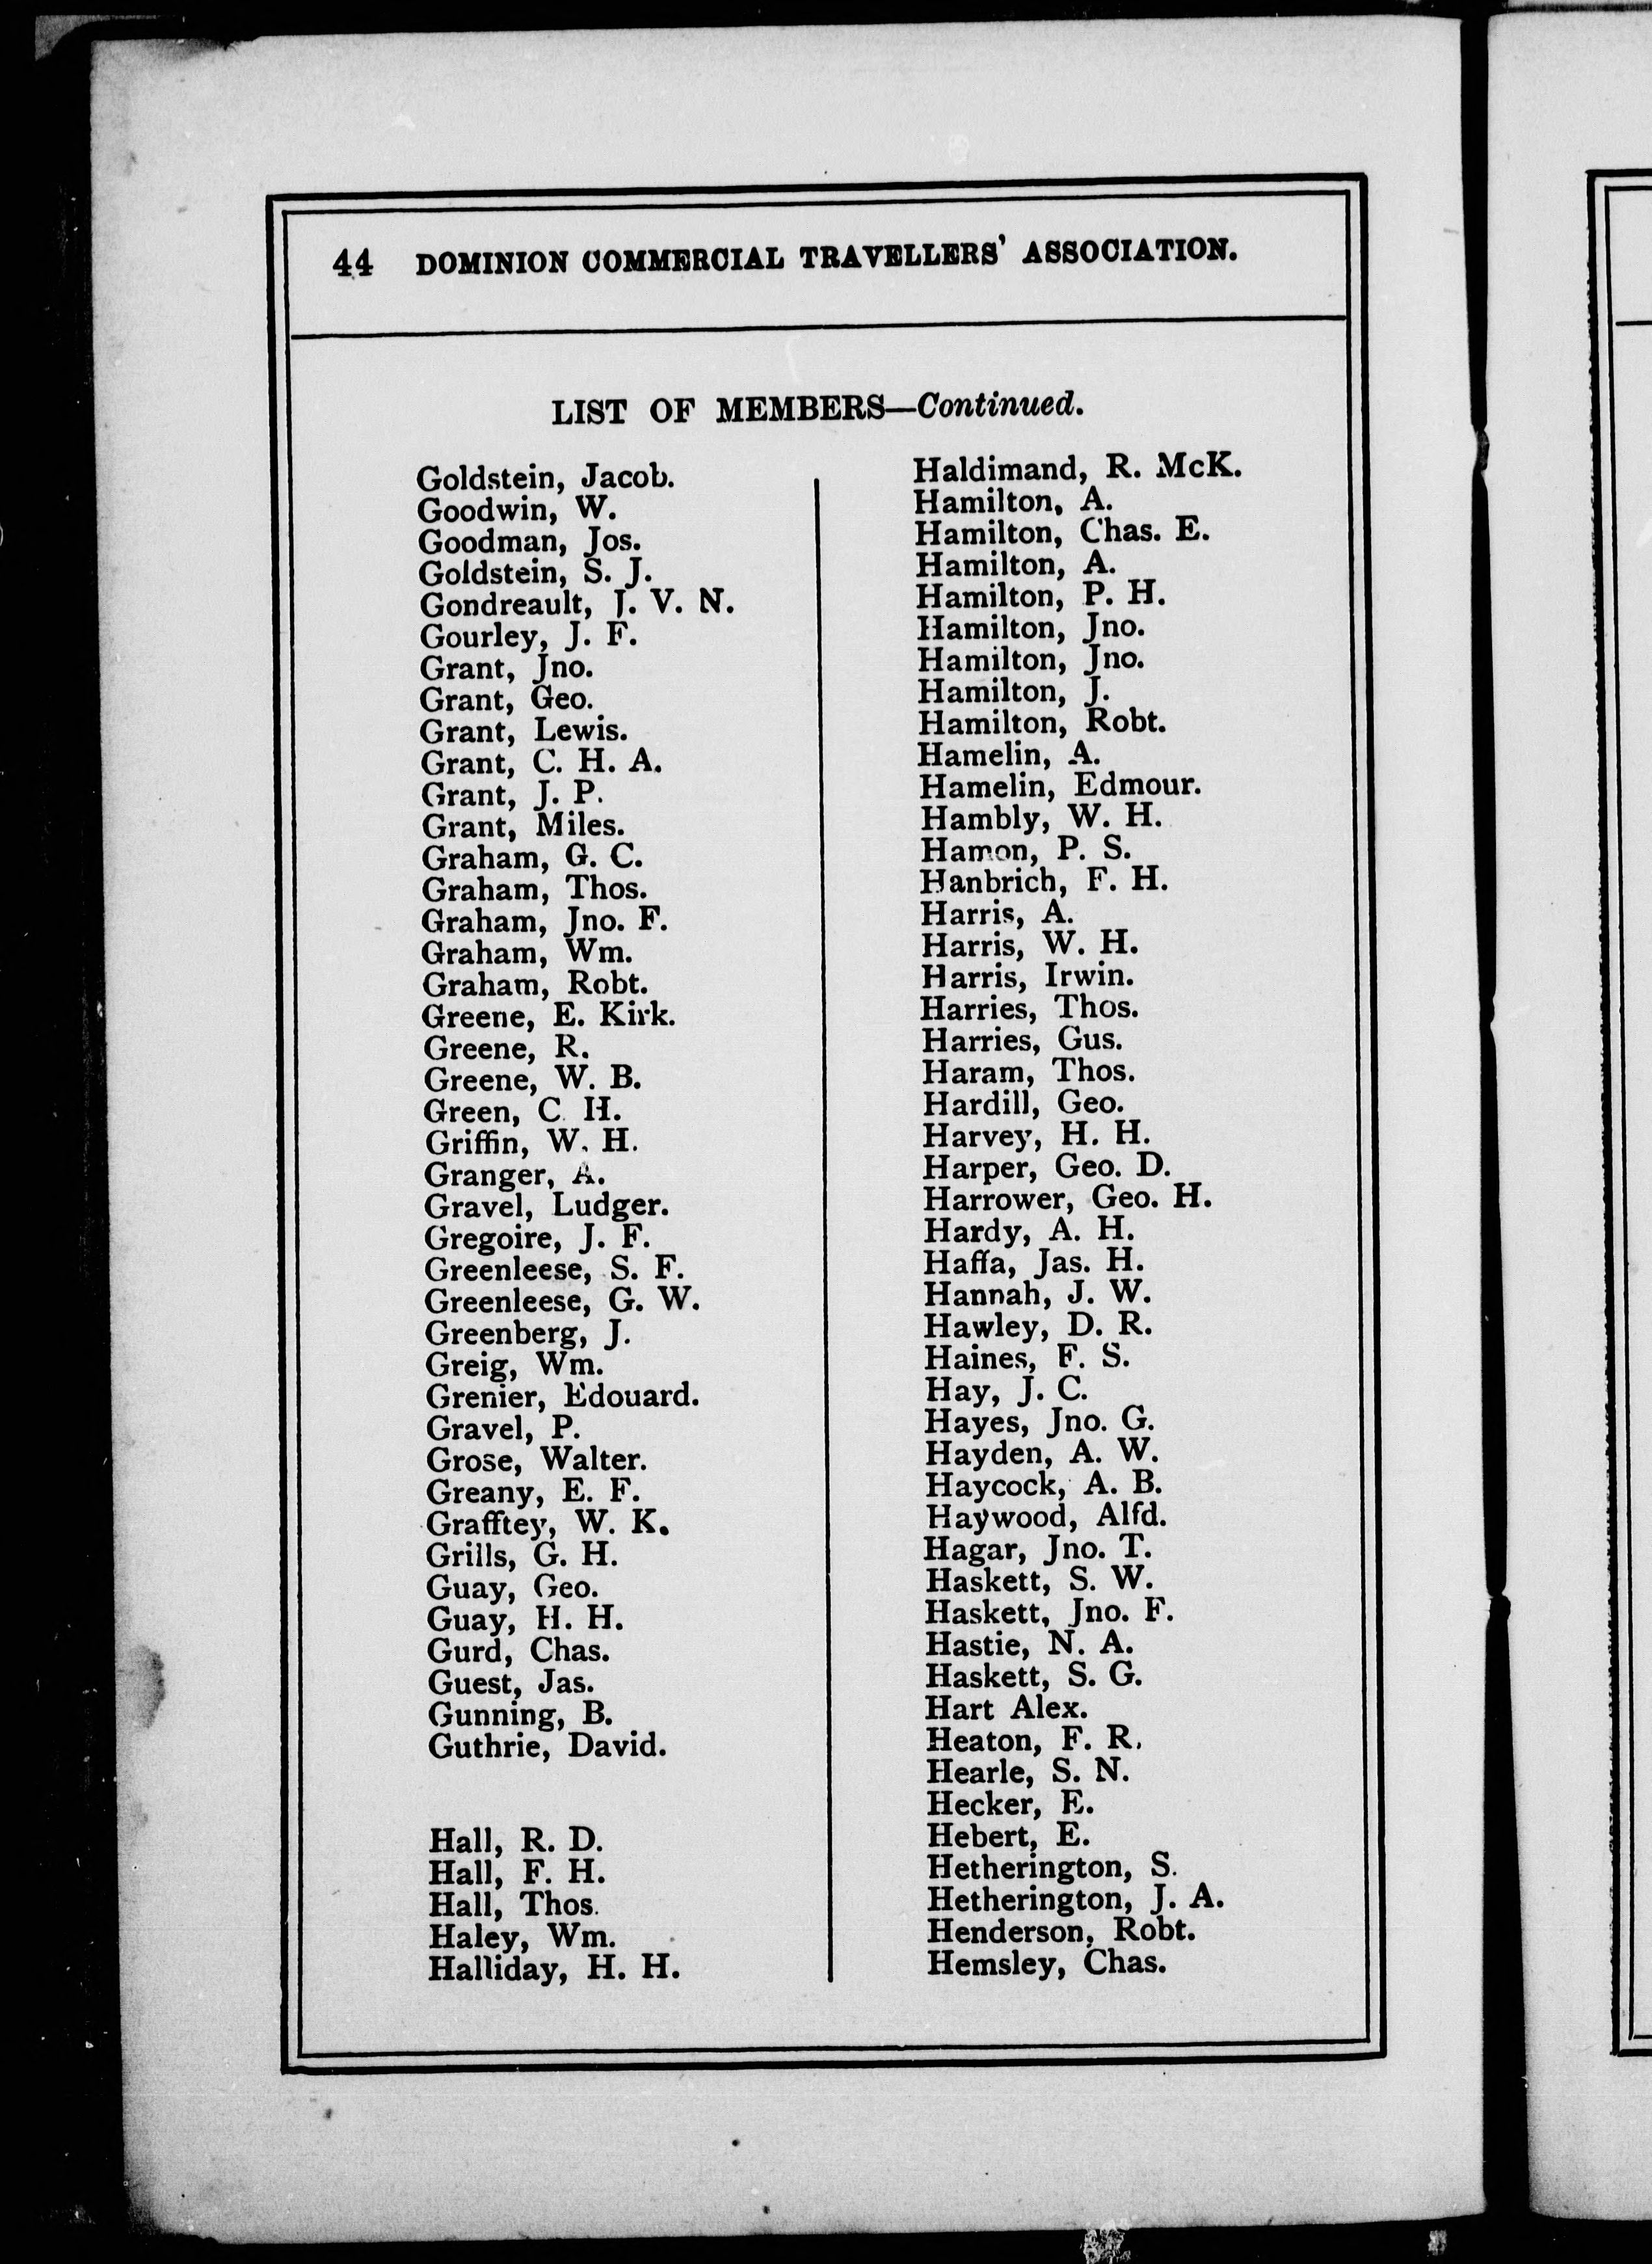 44 DOMINION COMMERCIAL TRAVELLERS' ASSOCIATION.
LIST OF MEMBERS—Continued.
Goldstein, Jacob.
Goodwin, W.
Goodman, Jos.
Goldstein, S. J.
Gondreault, J. V. N.
Gourley, J. F.
Grant, Jno.
Grant, Geo.
Grant, Lewis.
Grant, C. H. A.
Grant, J. P.
Grant, Miles.
Graham, G. C.
Graham, Thos.
Graham, Jno. F.
Graham, Wm.
Graham, Robt.
Greene, E. Kirk.
Greene, R.
Greene, W. B.
Green, C. H.
Griffin, W. H.
Granger, A.
Gravel, Ludger.
Gregoire, J. F.
Greenleese, S. F.
Greenleese, G. W.
Greenberg, J.
Greig, Wm.
Grenier, Edouard.
Gravel, P.
Grose, Walter.
Greany, E. F.
Grafftey, W. K.
Grills, G. H.
Guay, Geo.
Guay, H. H.
Gurd, Chas.
Guest, Jas.
Gunning, B.
Guthrie, David.
Hall, R. D.
Hall, F. H.
Hall, Thos.
Haley, Wm.
Halliday, H. H.
Haldimand, R. McK.
Hamilton, A.
Hamilton, Chas. E.
Hamilton, A.
Hamilton, P. H.
Hamilton, Jno.
Hamilton, Jno.
Hamilton, J.
Hamilton, Robt.
Hamelin, A.
Hamelin, Edmour.
Hambly, W. H.
Hamon, P. S.
Hanbrich, F. H.
Harris, A.
Harris, W. H.
Harris, Irwin.
Harries, Thos.
Harries, Gus.
Haram, Thos.
Hardill, Geo.
Harvey, H. H.
Harper, Geo. D.
Harrower, Geo. H.
Hardy, A. H.
Haffa, Jas. H.
Hannah, J. W.
Hawley, D. R.
Haines, F. S.
Hay, J. C.
Hayes, Jno. G.
Hayden, A. W.
Haycock, A. B.
Haywood, Alfd.
Hagar, Jno. T.
Haskett, S. W.
Haskett, Jno. F.
Hastie, N. A.
Haskett, S. G.
Hart Alex.
Heaton, F. R.
Hearle, S. N.
Hecker, E.
Hebert, E.
Hetherington, S.
Hetherington, J. A.
Henderson, Robt.
Hemsley, Chas.